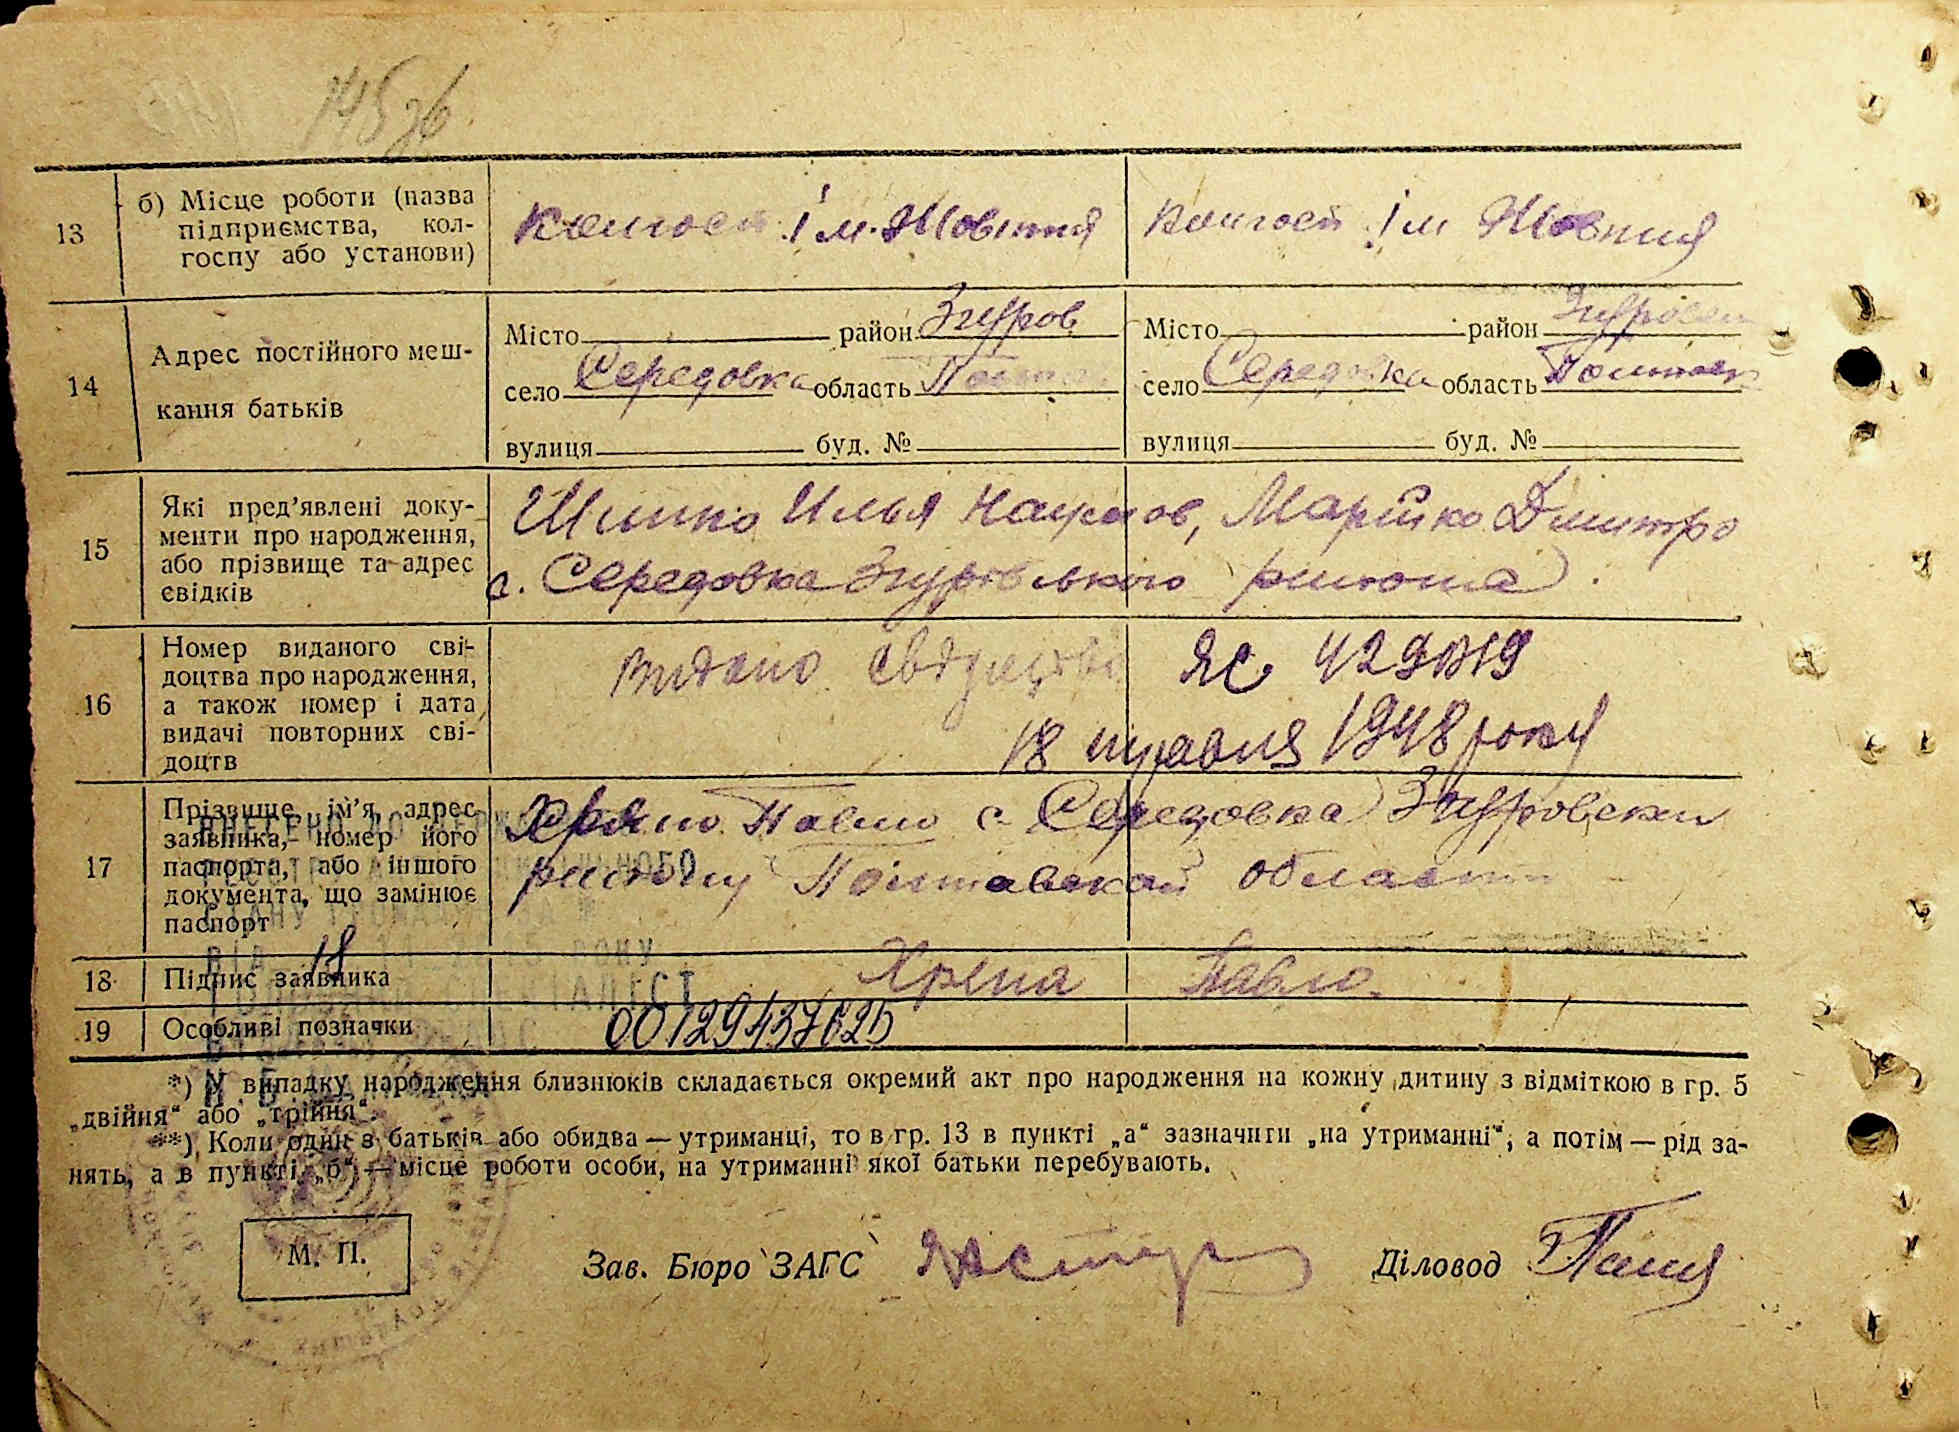 13
б) Місце роботи (назва
підприємства, кол-
госпу або установи)
Колгосп Ім. Жовтня
Колгосп Ім Жовтня
14
Адрес постійного меш-
кання батьків
Місто район Згуров
село Середовка область Полтав
вулиця буд. №
Місто район Згуровск
село Середовка область Полтавск
вулиця буд. №
15
Які пред’явлені доку-
менти про народження,
або прізвище та адрес
свідків
Шишко Илья Наумов, Марійко Дмитро
с. Середовка Згурівського района
16
Номер виданого сві-
доцтва про народження,
а також номер і дата
видачі повторних сві-
доцтв
видано свідоцтво ЯС
18 травня 1948 року
17
Прізвище, ім’я, адрес
заявника, номер його
паспорта, або іншого
документа, що замінює
паспорт
Павло с Середовка Згуровский
району Полтавской области
18
18
Підпис заявника
Хрепа Павло.
19
Особливі позначки
00129437625
*) У випадку народження близнюків складається окремий акт про народження на кожну дитину з відміткою в гр. 5
„двійня“ або „трійня“.
**) Коли один з батьків або обидва — утриманці, то в гр. 13 в пункті „а“ зазначити „на утриманні“, а потім — рід за-
нять, а в пункті „б“ — місце роботи особи, на утриманні якої батьки перебувають.
М. П.
Зав. Бюро ЗАГС
Діловод